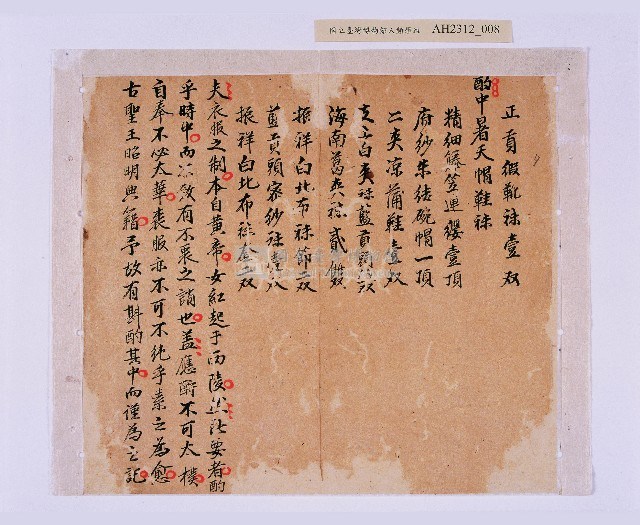 國立臺灣博物館人類學組 AH2312_008
正貢緞靴袜壹双
酌中暑天帽鞋袜
精細籐笠連纓壹頂
府紗朱結碗帽一頂
二夾凉蒲鞋壹双
白夾袜藍貢
海南葛 袜貳
振祥白北布袜節二双
藍貢頭家紗袜
振祥白北布袜 双
夫衣服之制本自黃帝女紅起于西陵 要者酌
乎時中而不致有不衷之誚也盖應酧不可太樸
自奉不必太華喪服亦不可不純乎素之為愈
古聖王昭明典籍予故有斟酌其中而謹為之記